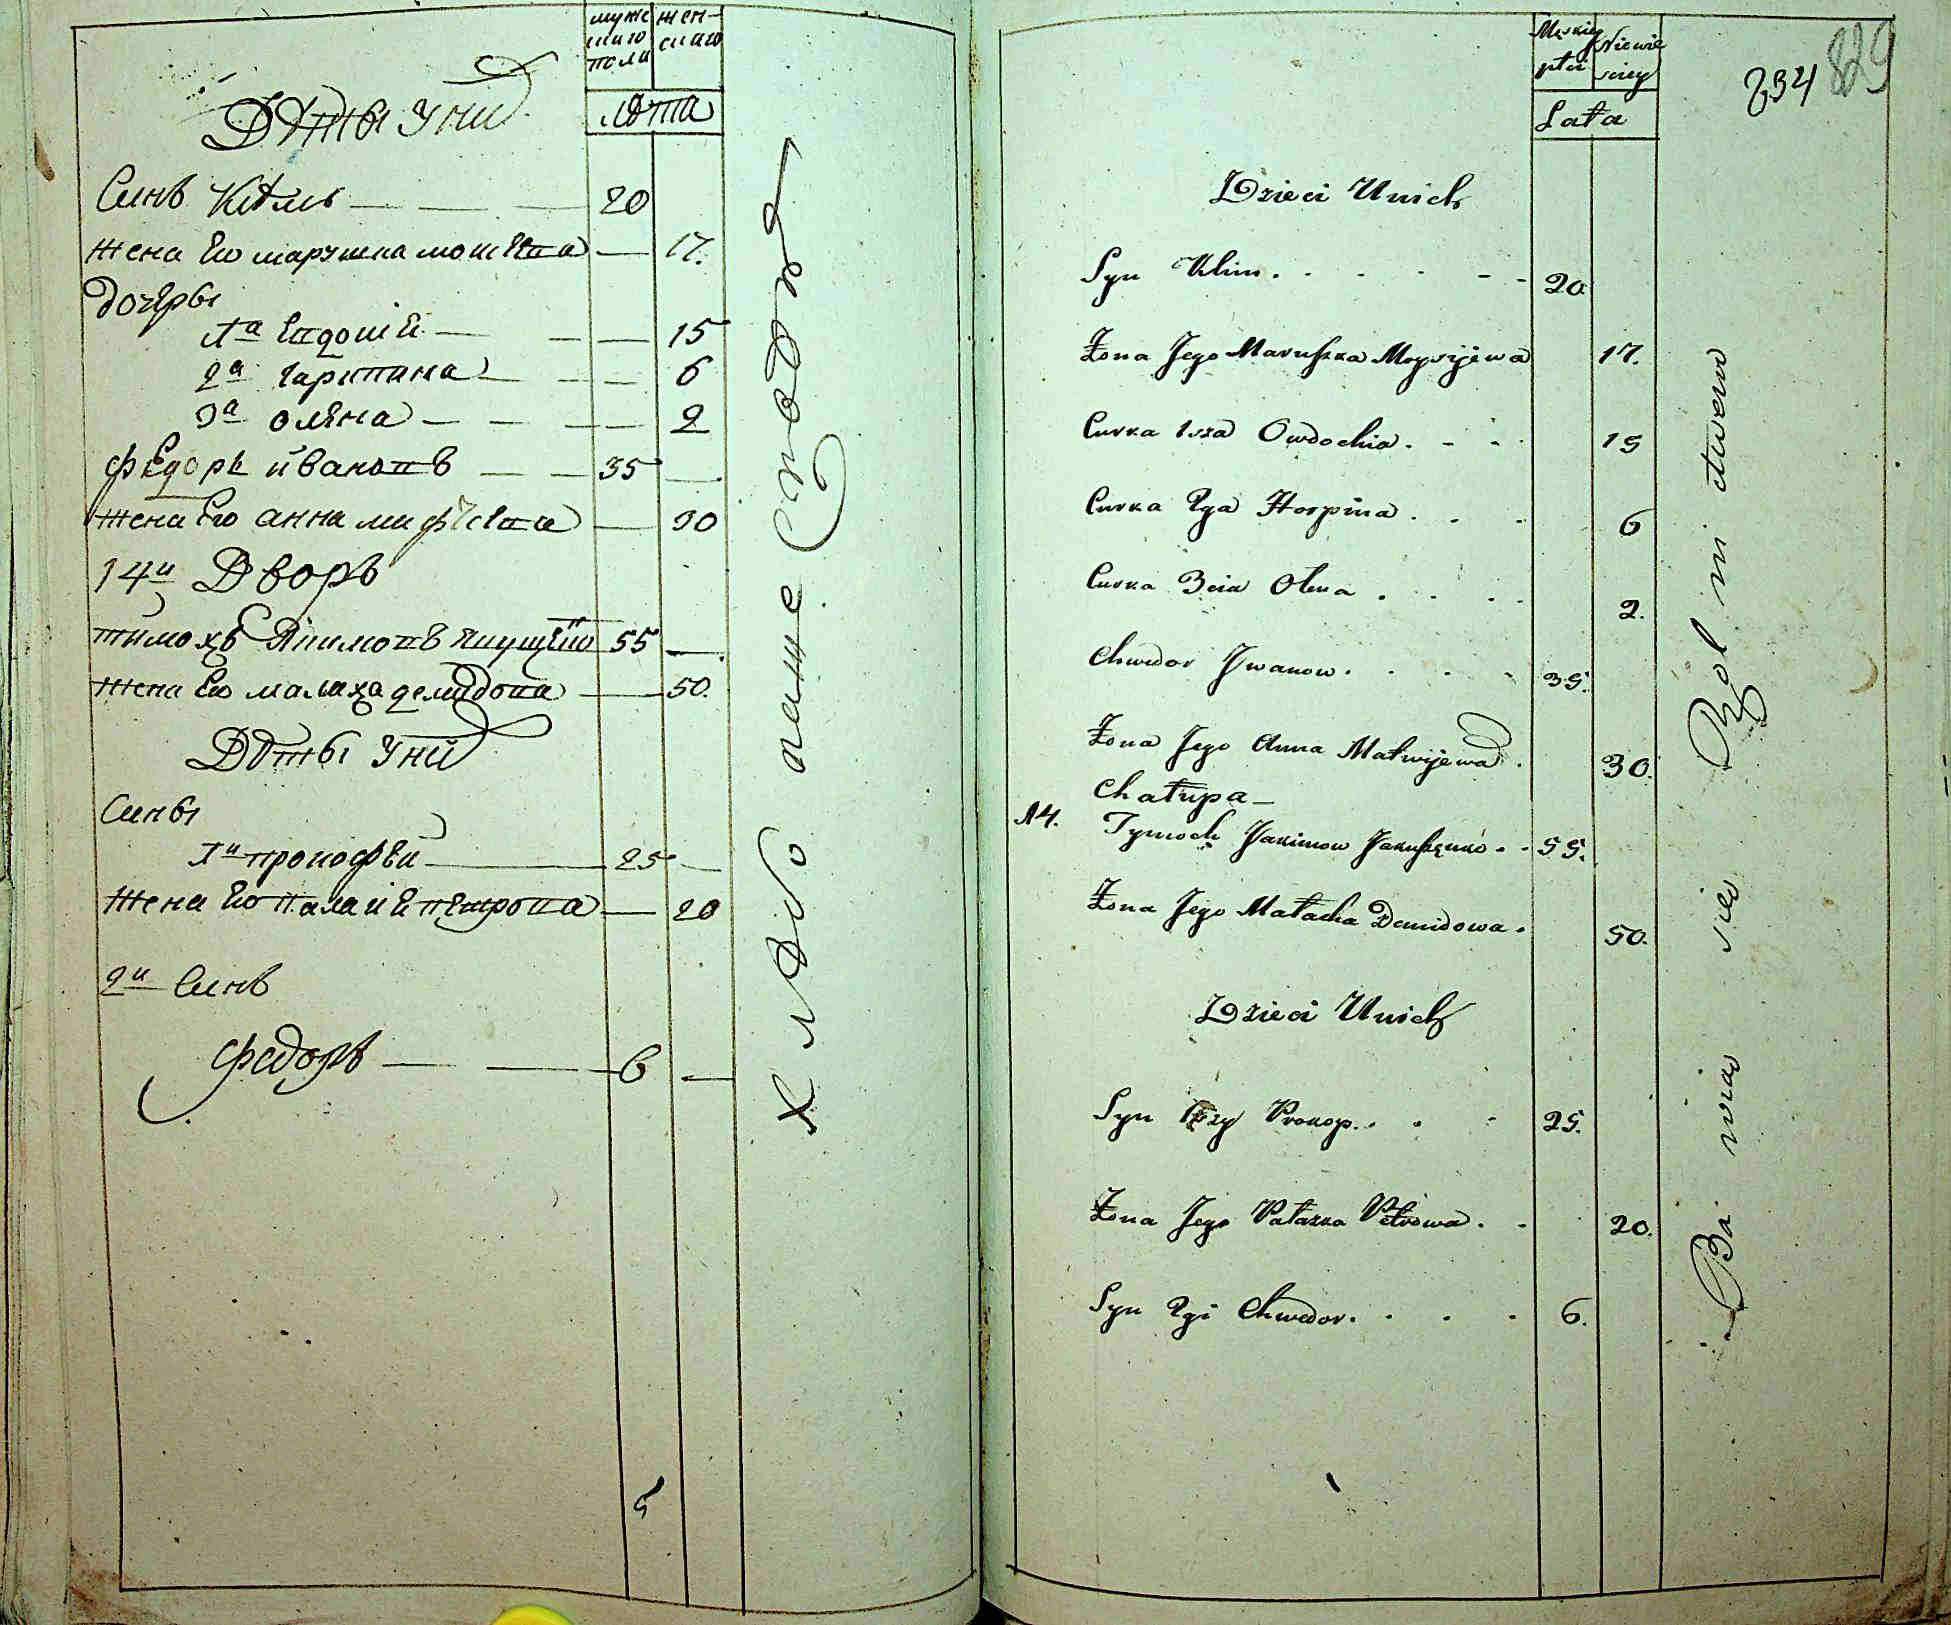 муже
скаго
пола
жен-
скаго
лѣта
Дѣты у нид
Синъ Клѣмъ 20
жена Его марушка моисѣева 17.
дочеры
1а Евдокіи 15
2а гарпина 6
3а олѣна 2
Фѣдоръ ивановъ 35
жена Его анна матфіева 30
14й Дворъ
тимохъ Якимовъ 55
жена Его малаха демидова 50.
Дѣты у ний
Сины
1й прокофѣй 25
жена Его палагиѣ пѣтрова 20
2й Синъ
Федоръ 6
5
Хлѣбо пашество
Męskiey
płci
Niewie
sciey
Lata
234
829
Dzieci Unich
Syn Klim. 20.
Żona Jego Maruszka Moysijewa 17.
Curka 1sza Owdochia. 15
Curka 2ga Horpina. 6
Curka 3cia Olena. 2.
Chwedor Jwanow. 35.
Żona Jego Anna Matwijewa. 30.
Chałupa
14. Tymoch Jakimow Jakuszenko. 55.
Żona Jego Małacha Demidowa. 50.
Dzieci Unich
Syn 1szy Prokop. 25.
Żona Jego Pałazka Petrowa. 20.
Syn 2gi Chwedor. 6.
Ba wią sie Rol ni ctwem